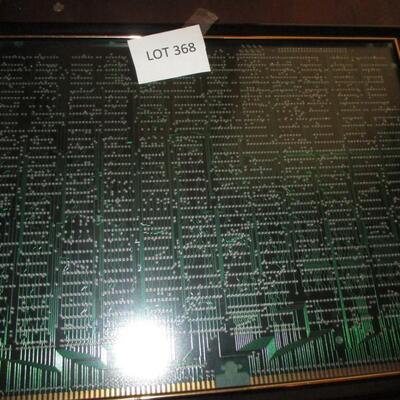 LOT 368